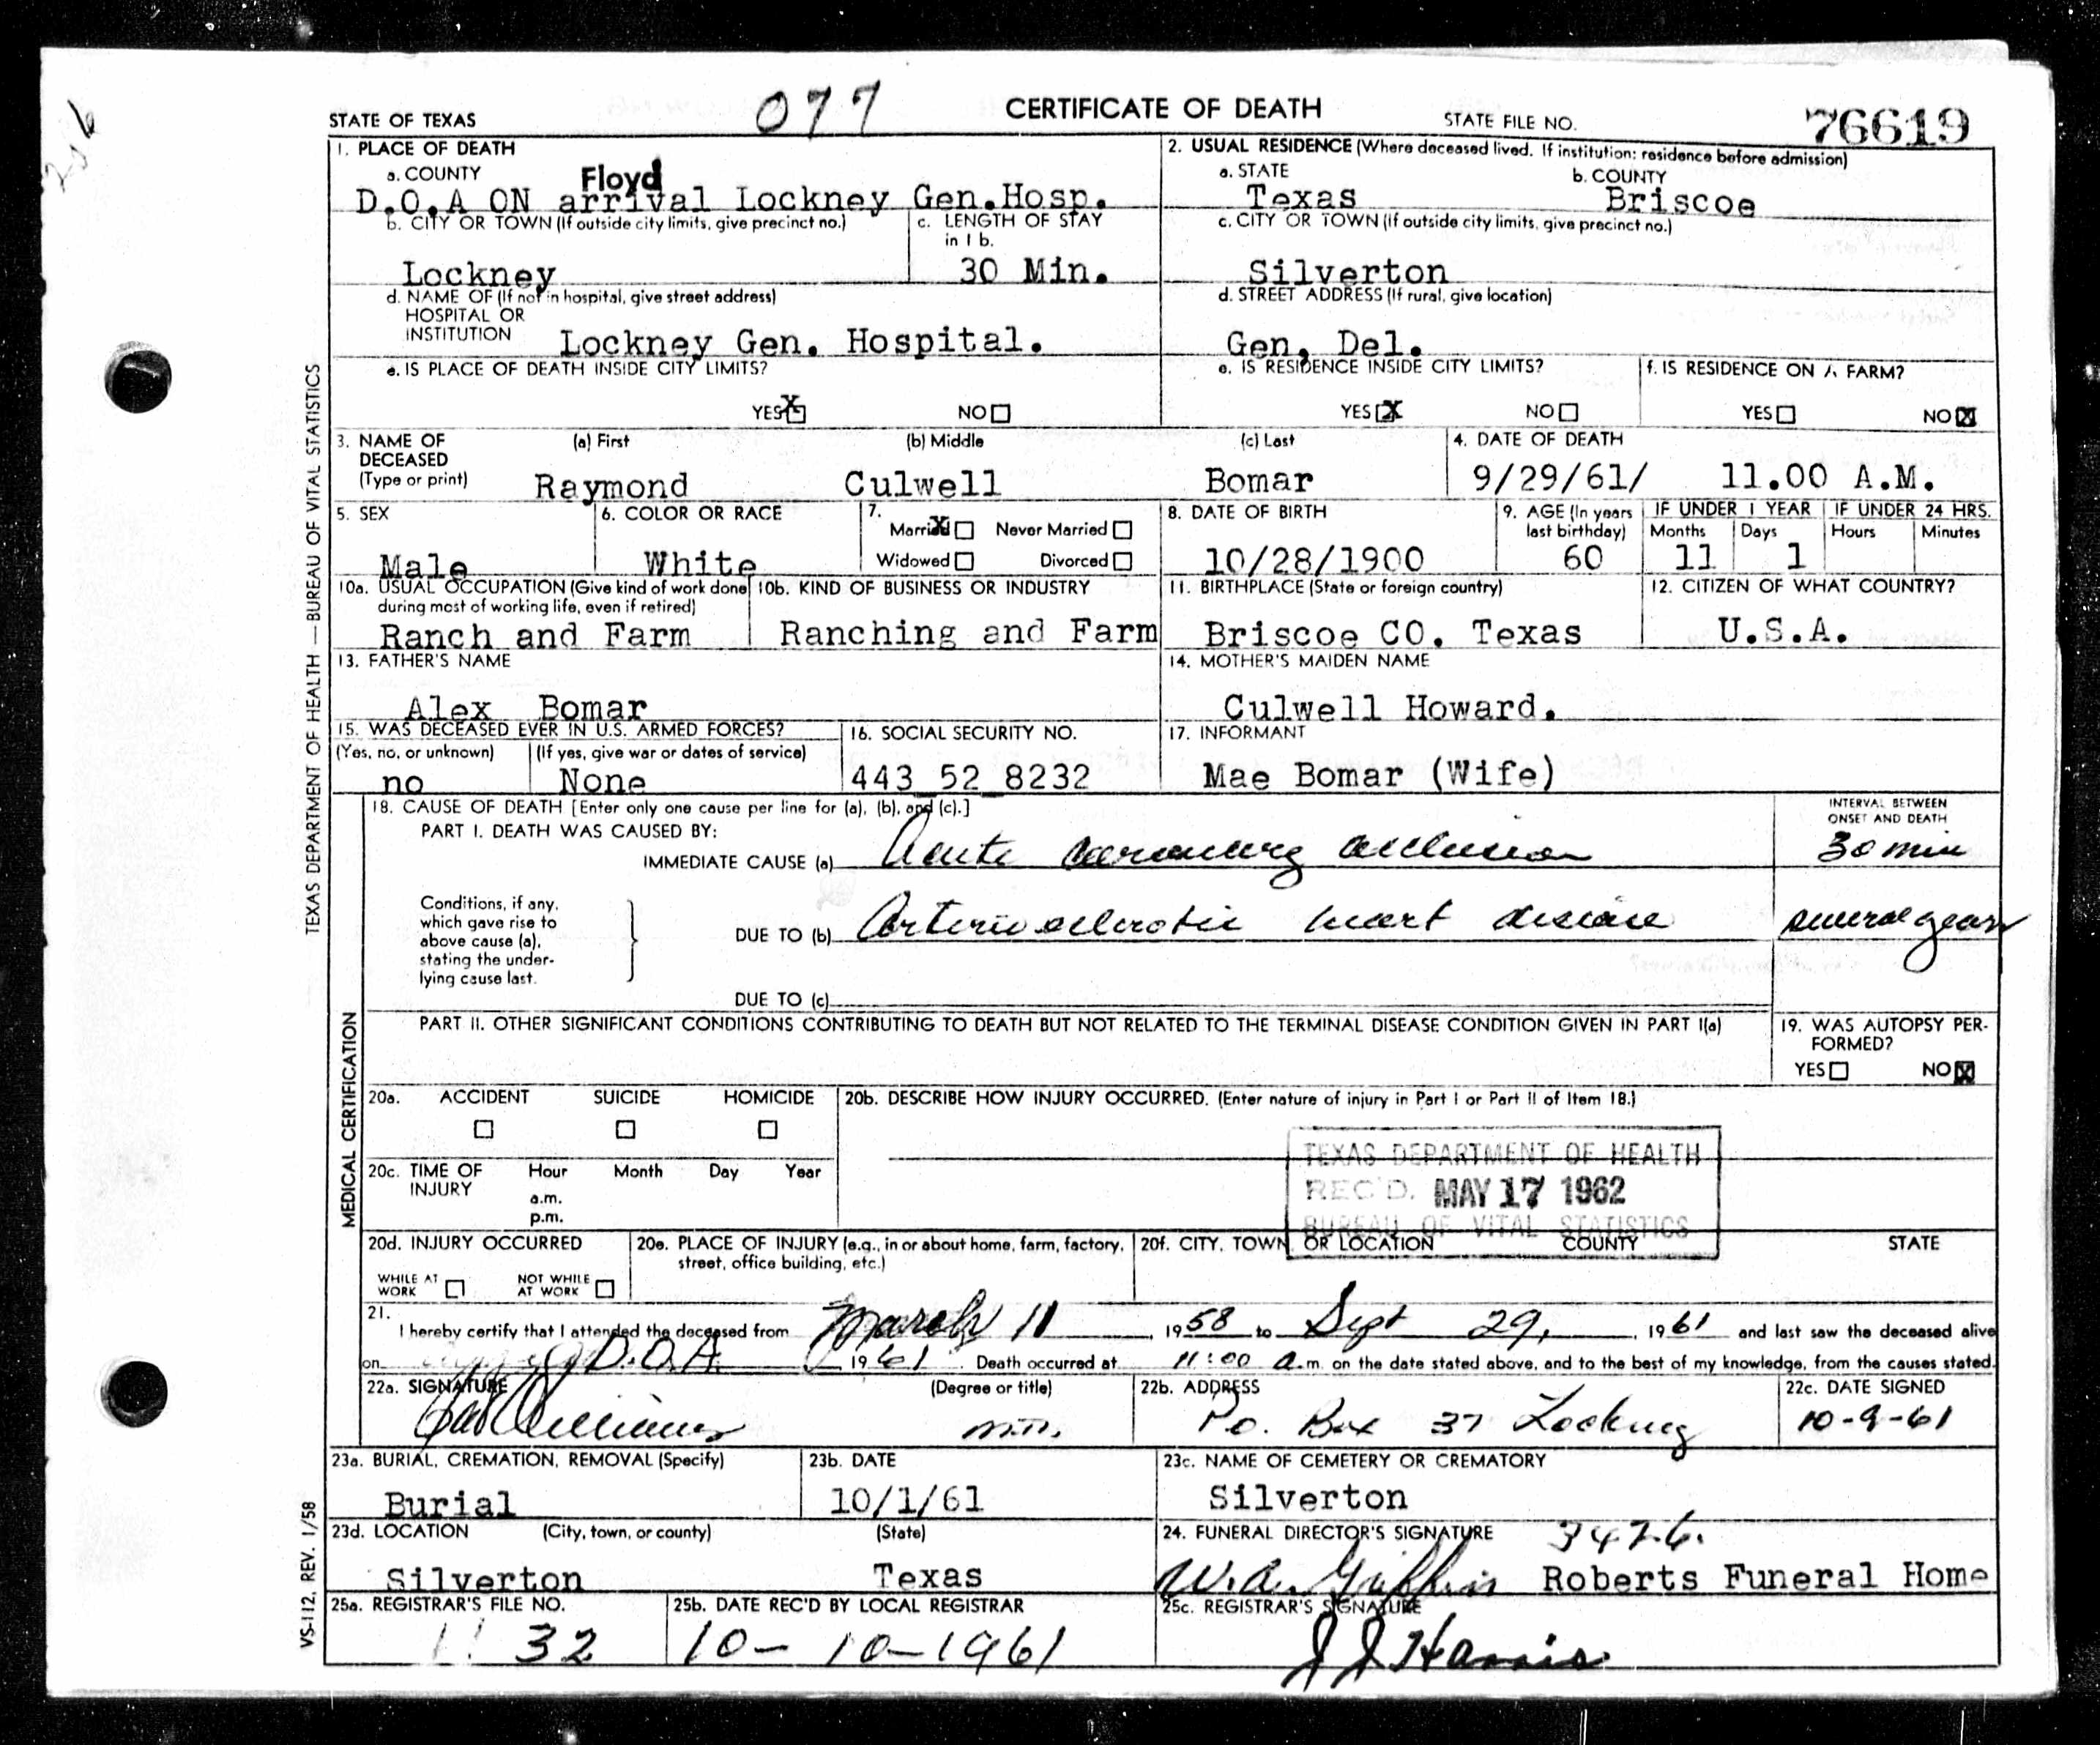 STATE OF TEXAS
077
CERTIFICATE OF DEATH
STATE FILE NO.
76619
1. PLACE OF DEATH
a. COUNTY
Floyd
D.O.A ON arrival Lockney Gen.Hosp.
2. USUAL RESIDENCE (Where deceased lived. If institution: residence before admission)
a. STATE
Texas
b. COUNTY
Briscoe
b. CITY OR TOWN (If outside city limits, give precinct no.)
Lockney
c. LENGTH OF STAY
in 1 b.
30 Min.
c. CITY OR TOWN (If outside city limits, give precinct no.)
Silverton
d. NAME OF (If not in hospital, give street address)
HOSPITAL OR
INSTITUTION
Lockney Gen. Hospital.
d. STREET ADDRESS (If rural, give location)
Gen, Del.
e. IS PLACE OF DEATH INSIDE CITY LIMITS?
YES X NO
e. IS RESIDENCE INSIDE CITY LIMITS?
YES X NO
f. IS RESIDENCE ON A FARM?
YES NO X
3. NAME OF
DECEASED
(Type or print)
(a) First
Raymond
(b) Middle
Culwell
(c) Last
Bomar
4. DATE OF DEATH
9/29/61/ 11.00 A.M.
5. SEX
Male
6. COLOR OR RACE
White
7.
Married X Never Married
Widowed Divorced
8. DATE OF BIRTH
10/28/1900
9. AGE (In years
last birthday)
60
IF UNDER 1 YEAR
Months Days
11 1
IF UNDER 24 HRS.
Hours Minutes
10a. USUAL OCCUPATION (Give kind of work done
during most of working life, even if retired)
Ranch and Farm
10b. KIND OF BUSINESS OR INDUSTRY
Ranching and Farm
11. BIRTHPLACE (State or foreign country)
Briscoe CO. Texas
12. CITIZEN OF WHAT COUNTRY?
U.S.A.
13. FATHER'S NAME
Alex Bomar
14. MOTHER'S MAIDEN NAME
Culwell Howard.
15. WAS DECEASED EVER IN U.S. ARMED FORCES?
(Yes, no, or unknown)
no
(If yes, give war or dates of service)
None
16. SOCIAL SECURITY NO.
443 52 8232
17. INFORMANT
Mae Bomar (Wife)
MEDICAL CERTIFICATION
18. CAUSE OF DEATH [Enter only one cause per line for (a), (b), and (c).]
PART I. DEATH WAS CAUSED BY:
IMMEDIATE CAUSE (a) Acute coronary occlusion
INTERVAL BETWEEN
ONSET AND DEATH
30 min
Conditions, if any,
which gave rise to
above cause (a),
stating the under-
lying cause last.
DUE TO (b) Arteriosclerotic heart disease
several years
DUE TO (c)
PART II. OTHER SIGNIFICANT CONDITIONS CONTRIBUTING TO DEATH BUT NOT RELATED TO THE TERMINAL DISEASE CONDITION GIVEN IN PART I(a)
19. WAS AUTOPSY PER-
FORMED?
YES NO X
20a. ACCIDENT SUICIDE HOMICIDE
20b. DESCRIBE HOW INJURY OCCURRED. (Enter nature of injury in Part I or Part II of Item 18.)
TEXAS DEPARTMENT OF HEALTH
REC'D. MAY 17 1962
BUREAU OF VITAL STATISTICS
20c. TIME OF
INJURY
Hour Month Day Year
a.m.
p.m.
20d. INJURY OCCURRED
WHILE AT
WORK
NOT WHILE
AT WORK
20e. PLACE OF INJURY (e.g., in or about home, farm, factory,
street, office building, etc.)
20f. CITY, TOWN OR LOCATION COUNTY STATE
21.
I hereby certify that I attended the deceased from March 11, 1958 to Sept 29, 1961 and last saw the deceased alive
on D.O.A. 1961. Death occurred at 11:00 a.m. on the date stated above, and to the best of my knowledge, from the causes stated.
22a. SIGNATURE
Williams
(Degree or title)
M.D.
22b. ADDRESS
P.o. Box 37 Lockney
22c. DATE SIGNED
10-9-61
23a. BURIAL, CREMATION, REMOVAL (Specify)
Burial
23b. DATE
10/1/61
23c. NAME OF CEMETERY OR CREMATORY
Silverton
23d. LOCATION (City, town, or county) (State)
Silverton Texas
24. FUNERAL DIRECTOR'S SIGNATURE
3426.
W.A. Griffin Roberts Funeral Home
25a. REGISTRAR'S FILE NO.
32
25b. DATE REC'D BY LOCAL REGISTRAR
10-10-1961
25c. REGISTRAR'S SIGNATURE
J J Harris
TEXAS DEPARTMENT OF HEALTH — BUREAU OF VITAL STATISTICS
VS-112, REV. 1/58